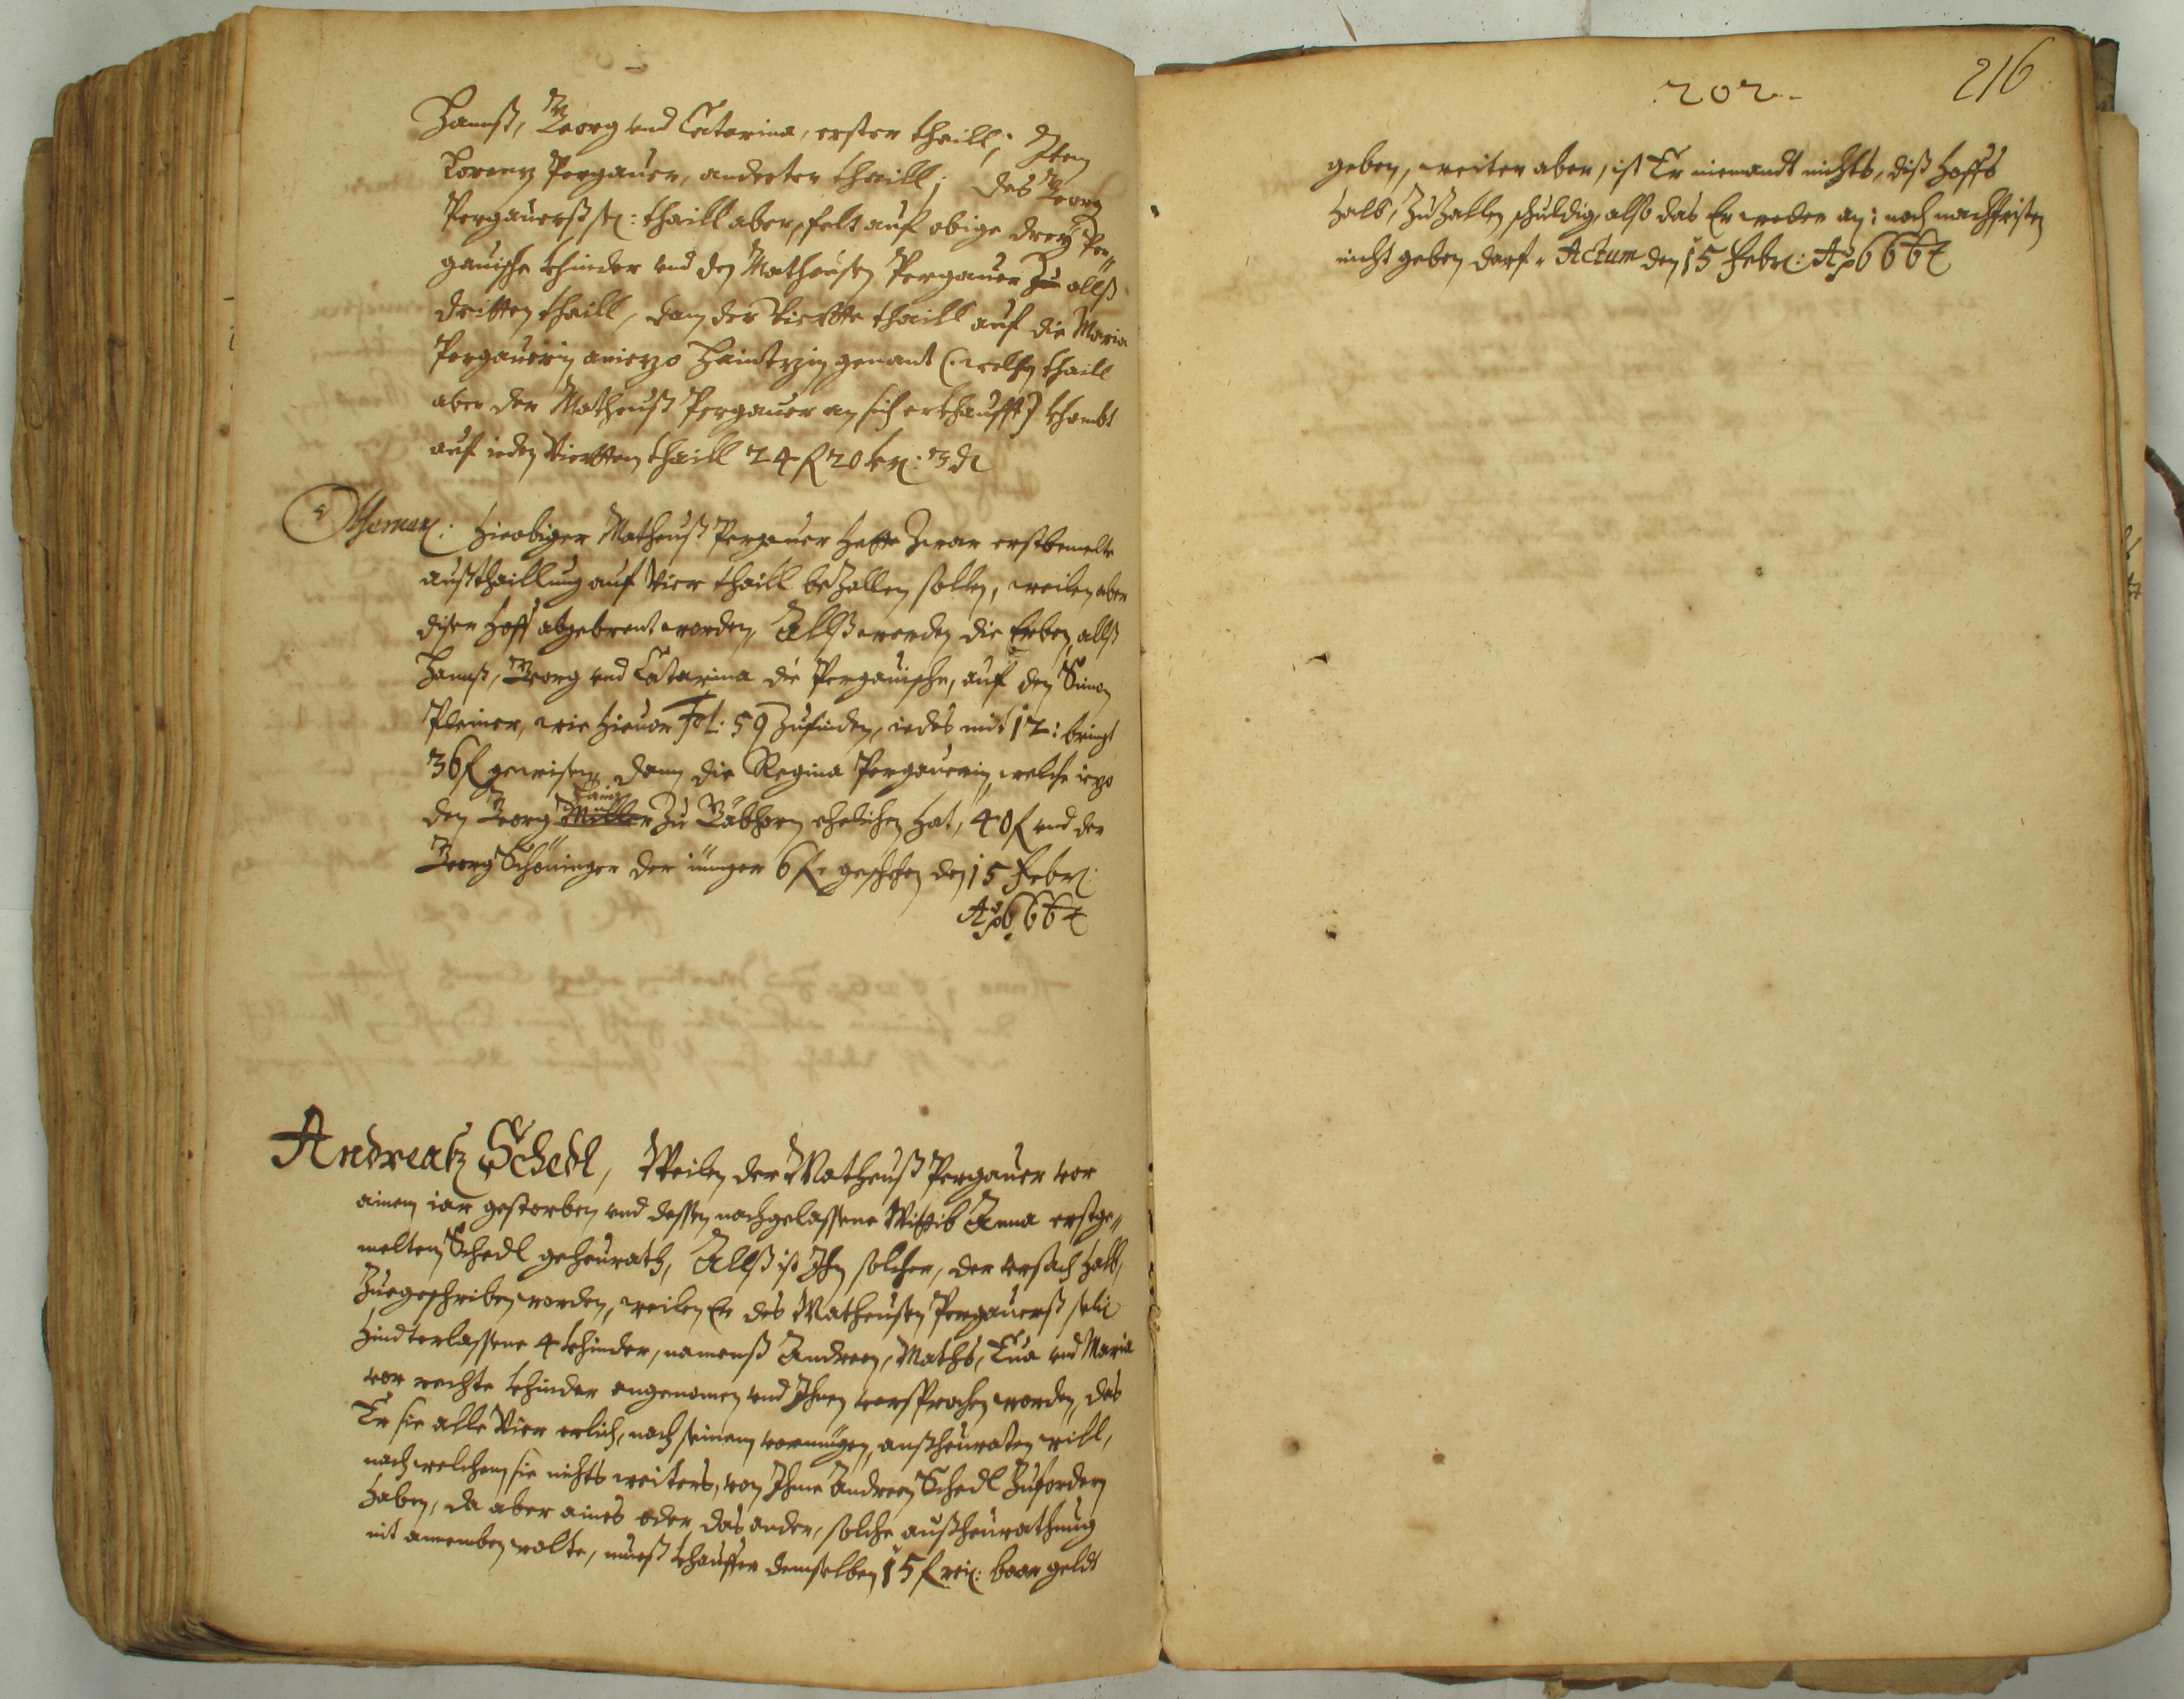 Hannß, Georg vnd Catarina, erster thaill; Item
Lorenz Pergauer, anderter thaill; des Georg
Pergauerß sel: thaill aber, felt auf obige drey Per„
gauische khinder vnd den Matheusen Pergauer Zu allß
dritten thaill, dann der Viertte thaill auf die Maria
Pergauerin aniezo Haintzin genant (: welchen thaill
aber der Matheuß Pergauer an sich erkhaufft) khombt
auf ieden Viertten thaill 24 f 20 kr: 3 d
Hieobiger Matheuß Pergauer hette Zwar erstbemelte
außthaillung auf Vier thaill beZallen sollen, weilen aber
diser Hoff abgebrent worden, Allß werden die Erben, allß
Hannß, Georg vnd Catarina die Pergauische, auf den Simon
Pleiner, wie hieuor Fol: 59 Zufinden, iedes mit 12: bringt
36 f gewisen, dann die Regina Pergauerin, welche iezo
den Georg Miller Zu ehelichen hat, 40 f vnd der
Georg Schöninger der iünger 6 f. geschehen den 15 Febr:
Ao 1666
Andreaß Schedl, Weilen der Matheuß Pergauer vor
ainem iar gestorben vnd dessen nachgelassene Wittib Anna erstge„
melten Schedl geheurath, Allß ist Ihm solcher, der vrsach halb,
Zuegeschriben worden, weilen Er des Matheusen Pergauerß selig
hindterlassene 4 khinder, namenß Andreen, Mathes, Eua vnd Maria
vor rechte khinder angenomen vnd Ihnen versprochen worden, das
Er sie alle Vier erlich, nach seinem vermügen, außheuraten will,
nach welchem sie nichts weiters, von Ihme Andreen Schedl Zufordern
haben, da aber aines oder das ander, solche außheurathung
nit annemben wolte, mueß khauffer demselben 15 f rei: baar geldt
202
216
geben, weiter aber, ist Er niemandt nichts, diß Hoffs
halb, Zu Zallen schuldig, also das Er weder an: noch nachfristen
nicht geben darf. Actum den 15 Febr: Ao 1666